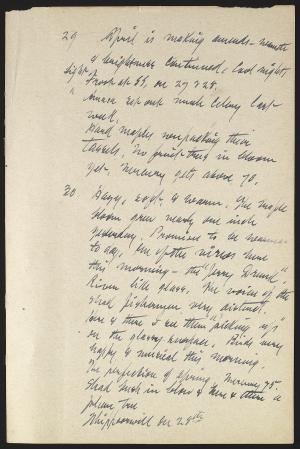 29 April is making amends - warmth
& brightness continued, last night,
light frost at 39, on 27 & 28.
" Anson set out much celery last
week.
Hard maples unpacking their
tassels. No fruit trees in bloom
yet. Mercury gets above 70.
30 Hazy, soft, & warm. The maple
bloom grew nearly one inch
yesterday. Promises to be warmer
to day. One of the voices here
this morning - the "
River like glass. The voices of the
shad fishermen very distinct.
here & there I see them "picking up"
on the glassy surface. Birds very
happy & musical this morning.
The perfection of spring. Mercury 75.
Shad bush in bloom & here & there a
plum tree
Whippoorwill on 28th